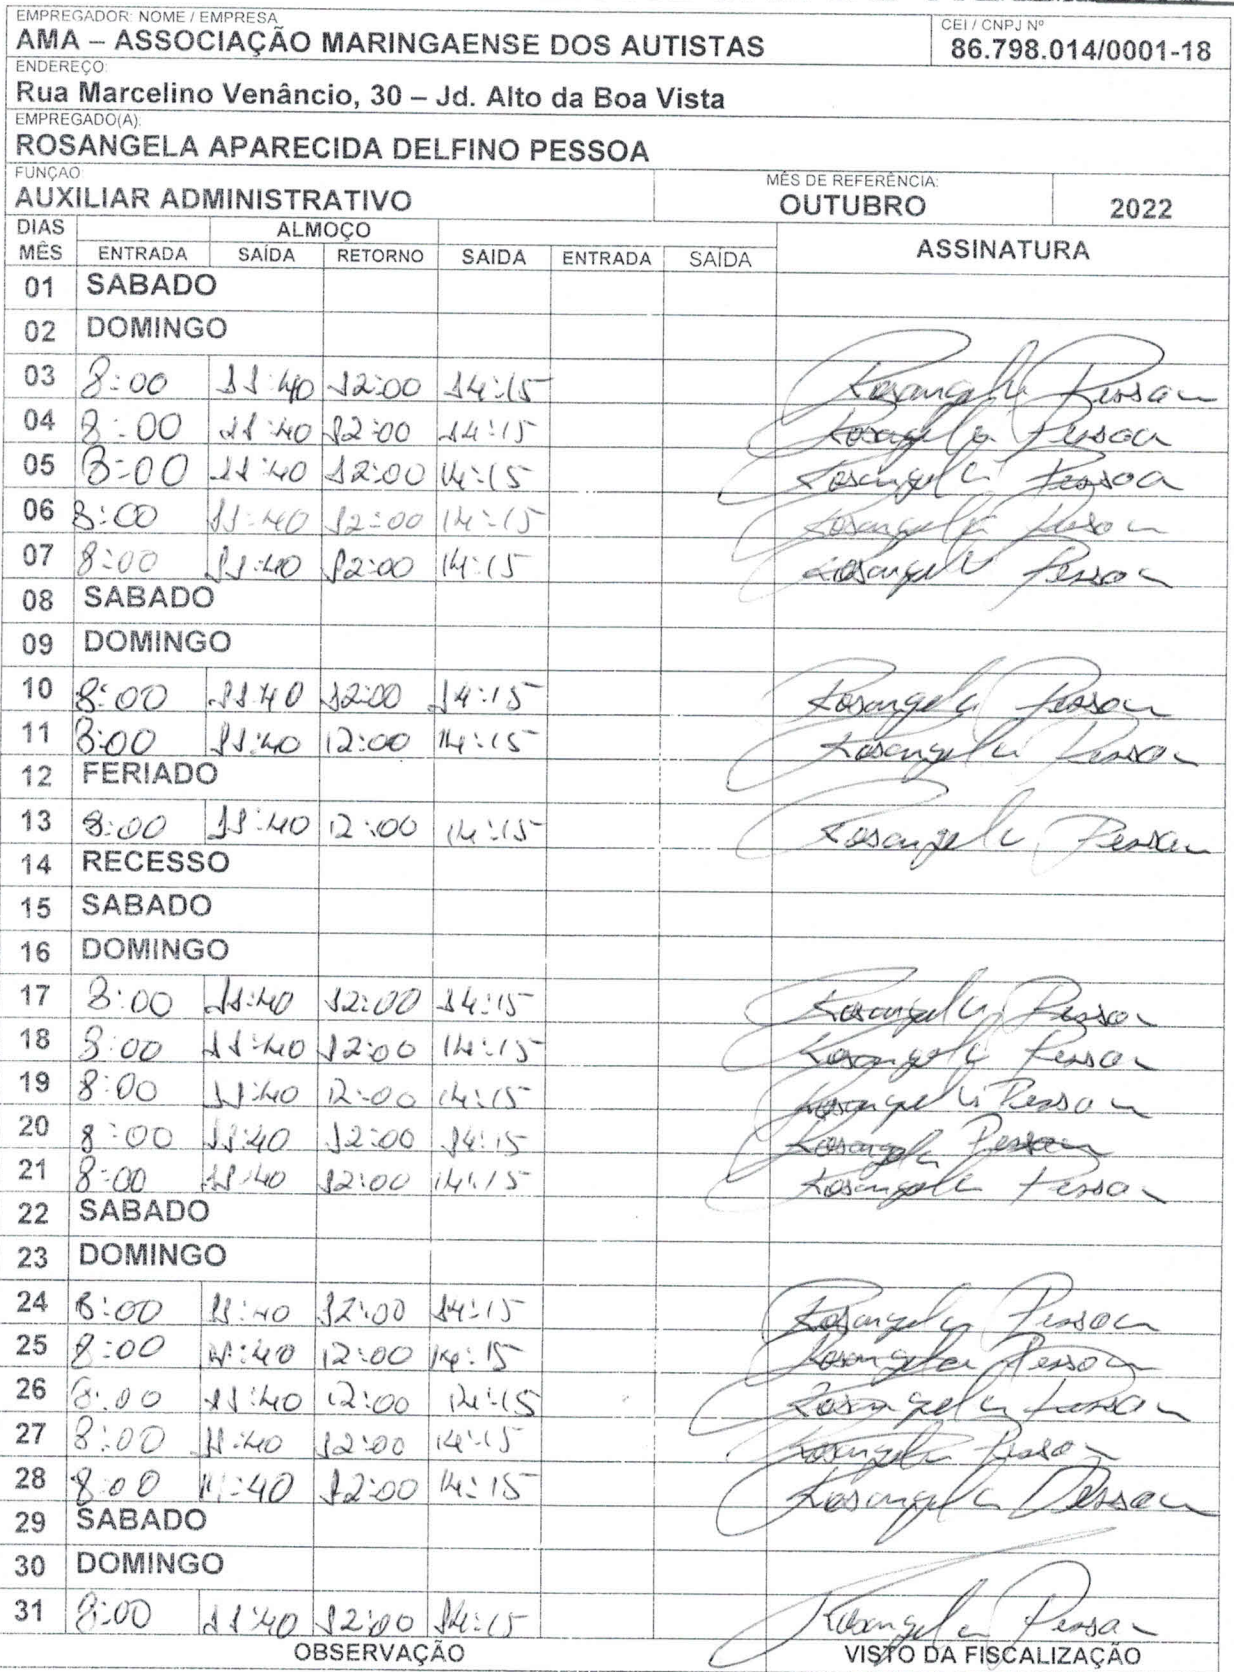 EMPREGADOR: NOME / EMPRESA
AMA – ASSOCIAÇÃO MARINGAENSE DOS AUTISTAS
CEI / CNPJ Nº
86.798.014/0001-18
ENDEREÇO:
Rua Marcelino Venâncio, 30 – Jd. Alto da Boa Vista
EMPREGADO(A):
ROSANGELA APARECIDA DELFINO PESSOA
FUNÇÃO:
AUXILIAR ADMINISTRATIVO
MÊS DE REFERÊNCIA:
OUTUBRO 2022
DIAS MÊS ALMOÇO ASSINATURA
ENTRADA SAÍDA RETORNO SAIDA ENTRADA SAÍDA
01 SABADO
02 DOMINGO
03 8:00 11:40 12:00 14:15 Rosangela Pessoa
04 8:00 11:40 12:00 14:15 Rosangela Pessoa
05 8:00 11:40 12:00 14:15 Rosangela Pessoa
06 8:00 11:40 12:00 14:15 Rosangela Pessoa
07 8:00 11:40 12:00 14:15 Rosangela Pessoa
08 SABADO
09 DOMINGO
10 8:00 11:40 12:00 14:15 Rosangela Pessoa
11 8:00 11:40 12:00 14:15 Rosangela Pessoa
12 FERIADO
13 8:00 11:40 12:00 14:15 Rosangela Pessoa
14 RECESSO
15 SABADO
16 DOMINGO
17 8:00 11:40 12:00 14:15 Rosangela Pessoa
18 8:00 11:40 12:00 14:15 Rosangela Pessoa
19 8:00 11:40 12:00 14:15 Rosangela Pessoa
20 8:00 11:40 12:00 14:15 Rosangela Pessoa
21 8:00 11:40 12:00 14:15 Rosangela Pessoa
22 SABADO
23 DOMINGO
24 8:00 11:40 12:00 14:15 Rosangela Pessoa
25 8:00 11:40 12:00 14:15 Rosangela Pessoa
26 8:00 11:40 12:00 14:15 Rosangela Pessoa
27 8:00 11:40 12:00 14:15 Rosangela Pessoa
28 8:00 11:40 12:00 14:15 Rosangela Pessoa
29 SABADO
30 DOMINGO
31 8:00 11:40 12:00 14:15 Rosangela Pessoa
OBSERVAÇÃO VISTO DA FISCALIZAÇÃO